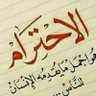 الاحترام
هو أجمل ما يقدمه الإنسان
الناس